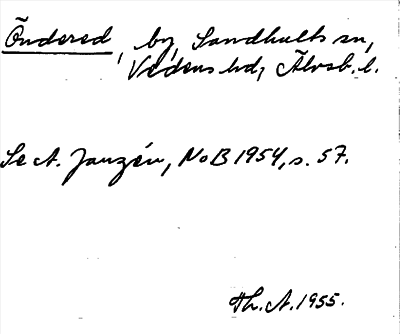 Öndered, by, Sandhults sn,
Vedens hd, Älvsb. l.
Se A. Janzén, NoB 1954, s. 57.
Th. A. 1955.